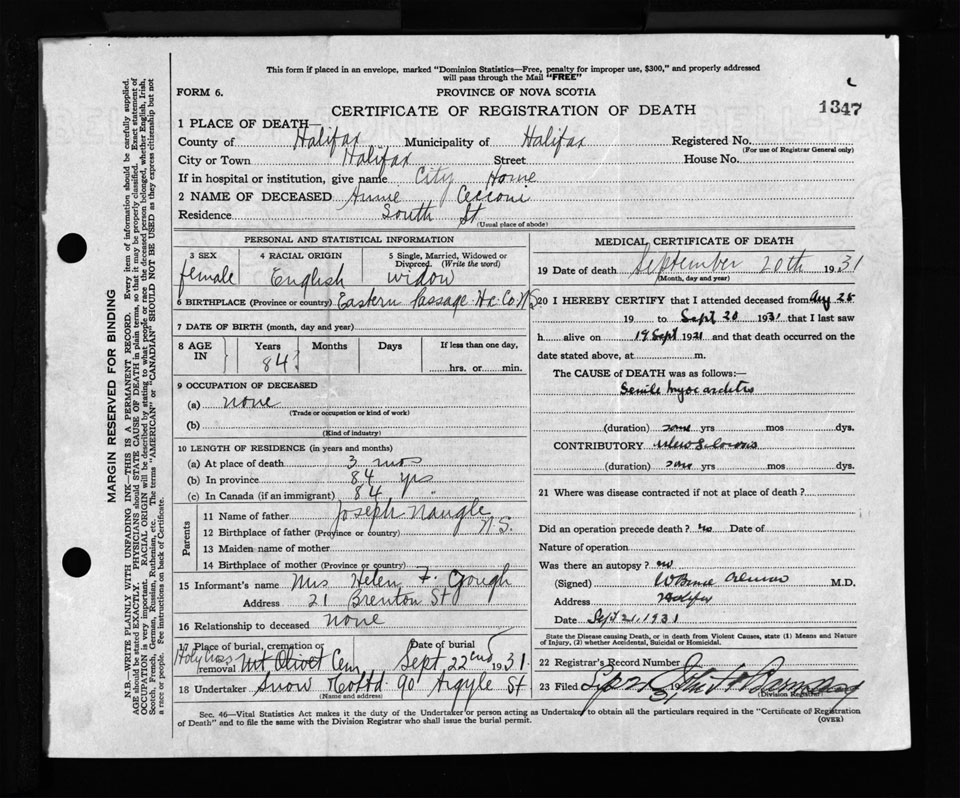 This form if placed in an envelope, marked "Dominion Statistics—Free, penalty for improper use, $300," and properly addressed
will pass through the Mail "FREE"
FORM 6.
PROVINCE OF NOVA SCOTIA
1347
CERTIFICATE OF REGISTRATION OF DEATH
1 PLACE OF DEATH—
County of Halifax Municipality of Halifax Registered No.
(For use of Registrar General only)
City or Town Halifax Street House No.
If in hospital or institution, give name City Home
2 NAME OF DECEASED Annie Cecconi
Residence South St
(Usual place of abode)
PERSONAL AND STATISTICAL INFORMATION
3 SEX 4 RACIAL ORIGIN 5 Single, Married, Widowed or Divorced. (Write the word)
female English widow
6 BIRTHPLACE (Province or country) Eastern Passage Hx Co NS
7 DATE OF BIRTH (month, day and year)
8 AGE IN Years Months Days If less than one day,
84? hrs. or min.
9 OCCUPATION OF DECEASED
(a) none
(Trade or occupation or kind of work)
(b)
(Kind of industry)
10 LENGTH OF RESIDENCE (in years and months)
(a) At place of death 3 mos
(b) In province 84 yrs
(c) In Canada (if an immigrant) 84 "
Parents
11 Name of father Joseph Naugle
12 Birthplace of father (Province or country) N.S.
13 Maiden name of mother
14 Birthplace of mother (Province or country)
15 Informant's name Mrs Helen F. Gough
Address 21 Brenton St
16 Relationship to deceased none
17 Place of burial, cremation or removal Date of burial
Holy Cross Mt Olivet Cem Sept 22nd 1931
18 Undertaker Snow & Co Ltd 90 Argyle St
(Name and address)
MEDICAL CERTIFICATE OF DEATH
19 Date of death September 20th 1931
(Month, day and year)
20 I HEREBY CERTIFY that I attended deceased from Aug 25
19 to Sept 20 1931 that I last saw
h alive on 19 Sept 1931 and that death occurred on the
date stated above, at m.
The CAUSE of DEATH was as follows:—
Senile myocarditis
(duration) some yrs mos dys.
CONTRIBUTORY
(duration) some yrs mos dys.
21 Where was disease contracted if not at place of death?
Did an operation precede death? no Date of
Nature of operation
Was there an autopsy? no
(Signed) M.D.
Address Halifax
Date Sept 21, 1931
State the Disease causing Death, or in death from Violent Causes, state (1) Means and Nature
of Injury, (2) whether Accidental, Suicidal or Homicidal.
22 Registrar's Record Number
23 Filed
(Division Registrar)
Sec. 46—Vital Statistics Act makes it the duty of the Undertaker or person acting as Undertaker to obtain all the particulars required in the "Certificate of Registration
of Death" and to file the same with the Division Registrar who shall issue the burial permit.
(OVER)
MARGIN RESERVED FOR BINDING
N.B.—WRITE PLAINLY WITH UNFADING INK—THIS IS A PERMANENT RECORD. Every item of information should be carefully supplied.
AGE should be stated EXACTLY. PHYSICIANS should STATE CAUSE OF DEATH in plain terms, so that it may be properly classified. Exact statement of
OCCUPATION is very important. RACIAL ORIGIN will be described by stating to what people or race the deceased person belonged, whether English, Irish,
Scotch, French, German, Russian, Ruthenian, etc. The terms "AMERICAN" or "CANADIAN" SHOULD NOT BE USED as they express citizenship but not
a race or people. See instructions on back of Certificate.